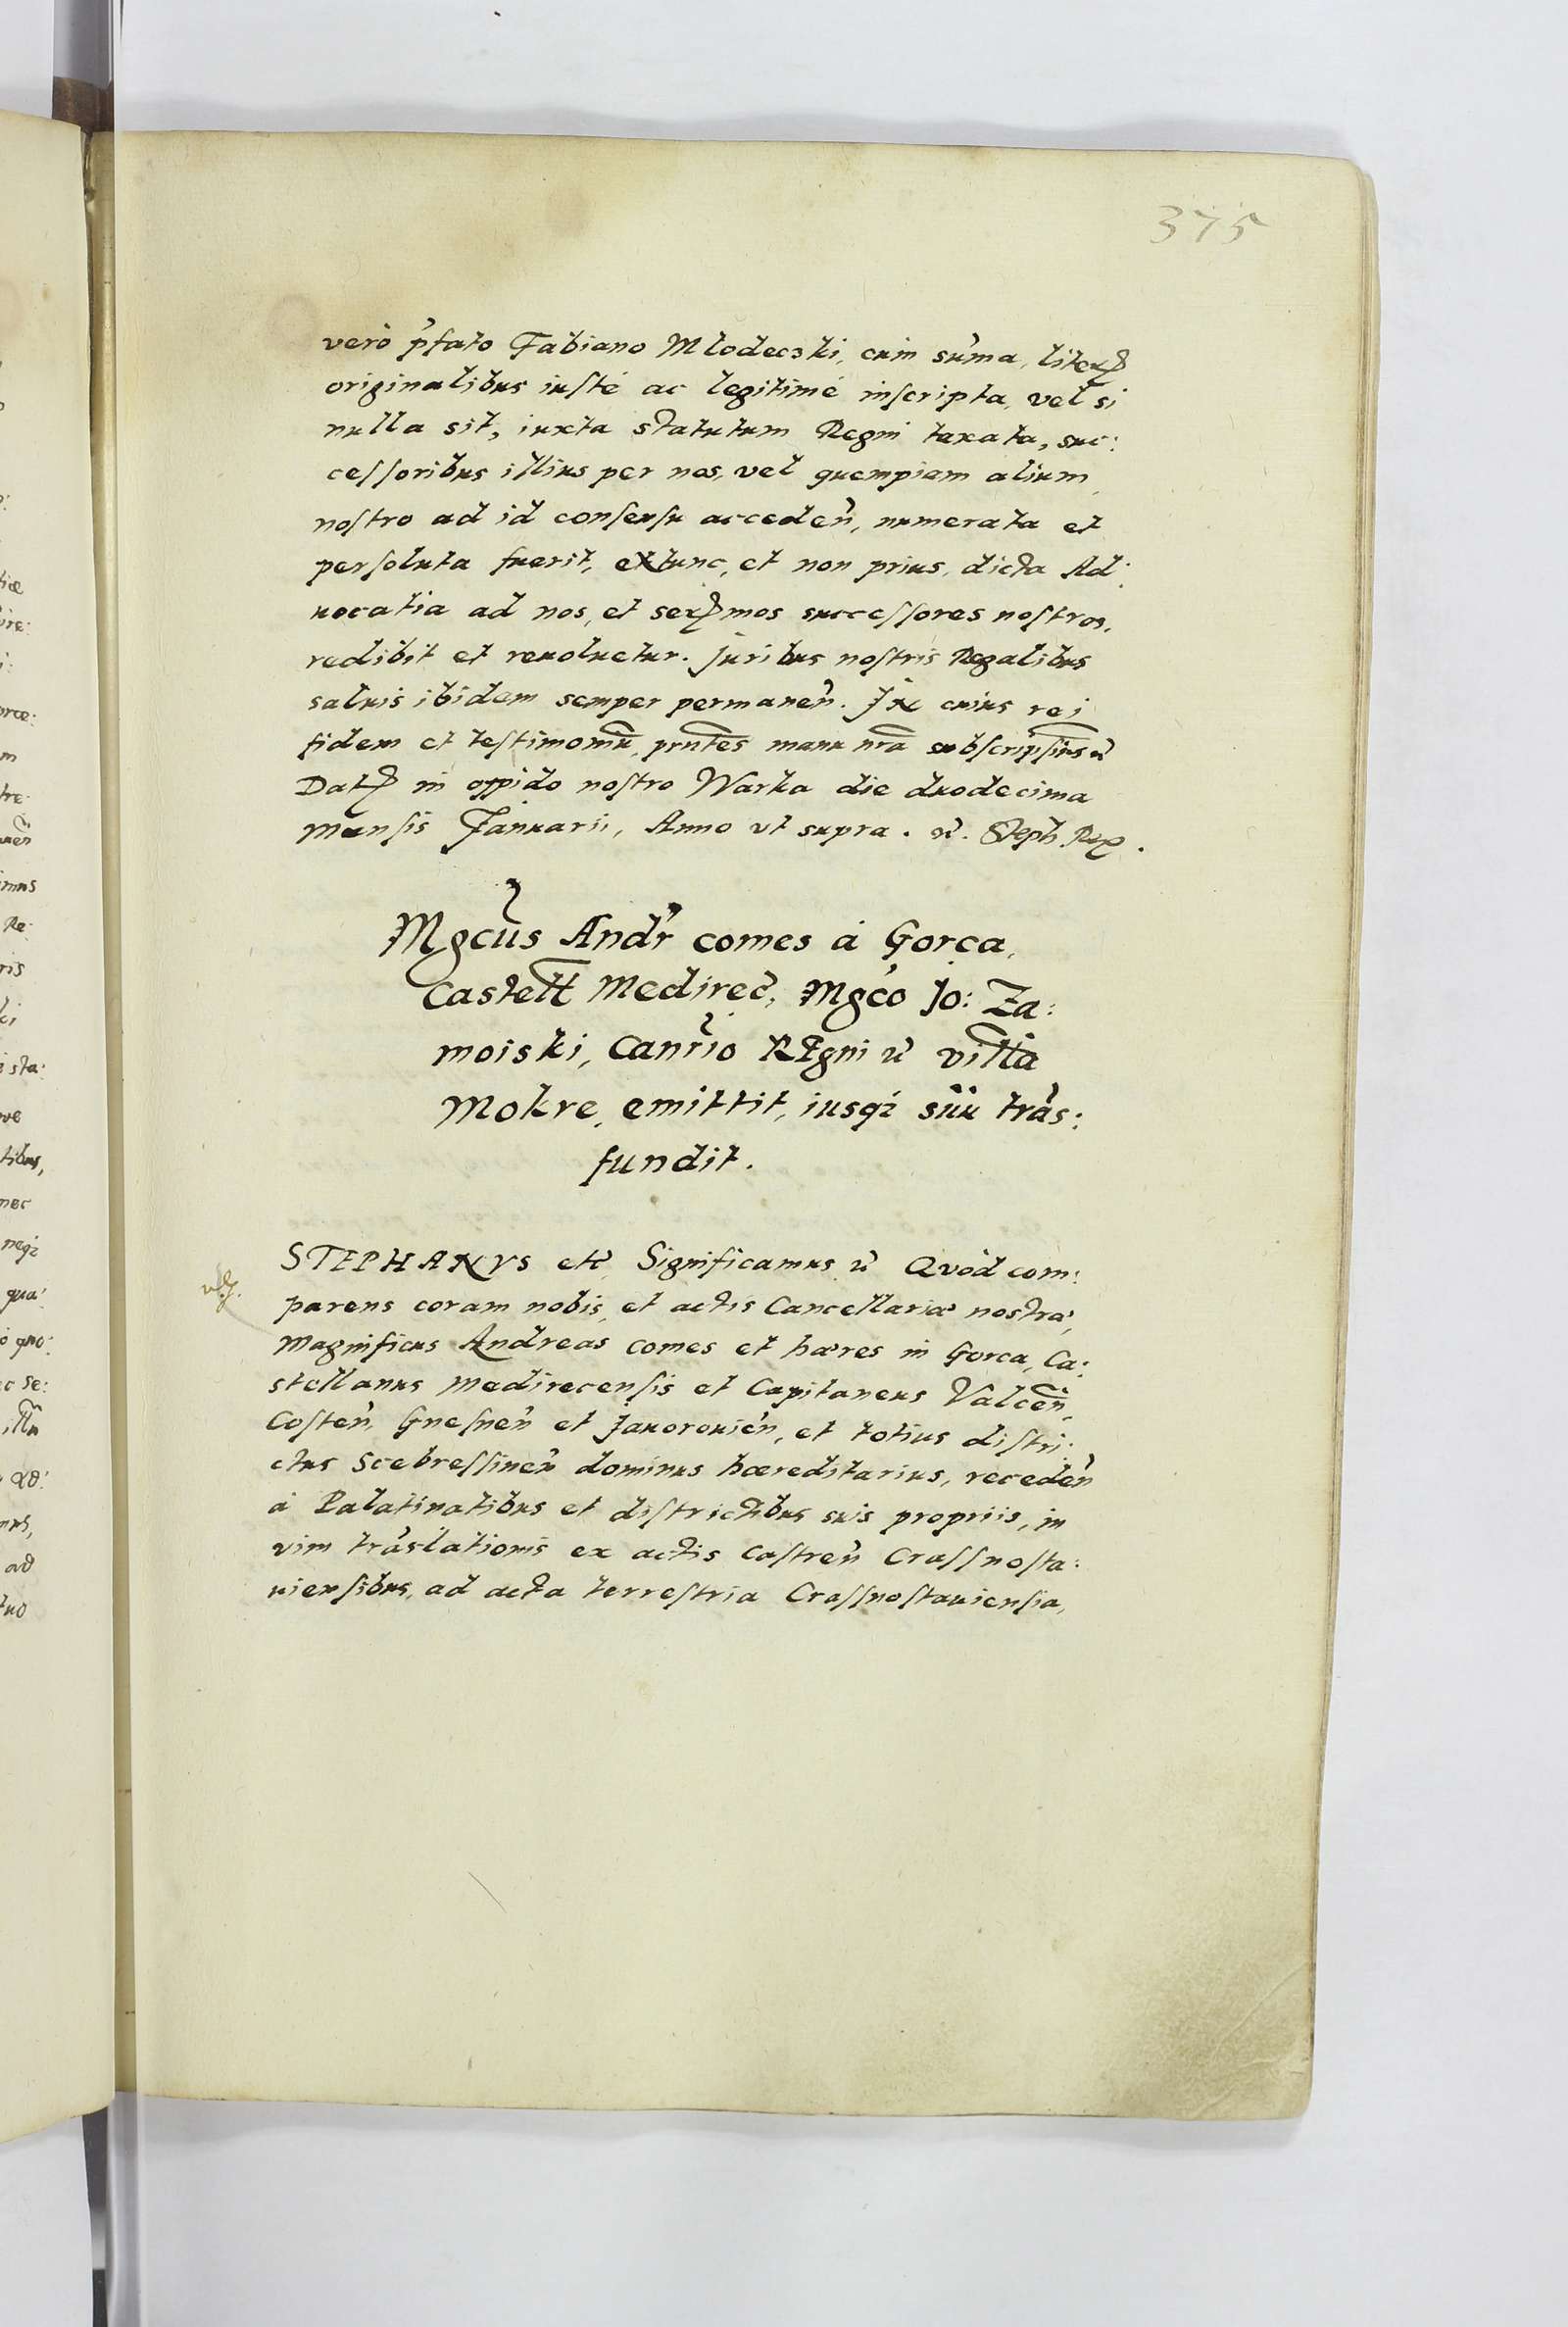 375
verò p̓fato Fabiano Mlodeczki, cum sum̃a, literꝭ
originalibus iusté ac legitimé inscripta, vel si
nulla sit, iuxta statutum Regni taxata, suc:
cessoribus illius per nos, vel quempiam alium,
nostro ad id consensu acceden̓, numerata et
persoluta fuerit, extunc, et non prius, dicta Ad:
uocatia ad nos, et serꝭmos successores nostros,
redibit et reuoluetur. Juribus nostris Regalibus
saluis ibidem semper permanen̓. In cuius rei
fidem et testimoniũ, pn̄tes manu nr̄a subscripsim̃us
Datꝭ in oppido nostro Warka die duodecima
mensis Januarii, Anno vt supra. Steph Rex.
Mgcūs Andr̓ comes á Gorca,
Castell̄ Medirec̓, Mgc̓o Jo: Za:
moiski, Canr̃io Regni vill̃a
Mokre, emittit, iusqз suũ tran̓s:
fundit.
STEPHANVS etc̓ Significamus Quód com:
parens coram nobis, et actis Cancellariæ nostræ,
Magnificus Andreas comes et hæres in Gorca, Ca:
stellanus Medirecensis et Capitaneus Valcen̄,
Costen̓, Gnesnen̓ et Jauorouien̓, et totius distri:
ctus Scebressinen̓ dominus hæreditarius, receden̓
á Palatinatibus et districtibus suis propriis, in
vim tran̓slationis ex actis castren̓ Crassnosta:
uiensibus, ad acta terrestria Crassnostauiensia,